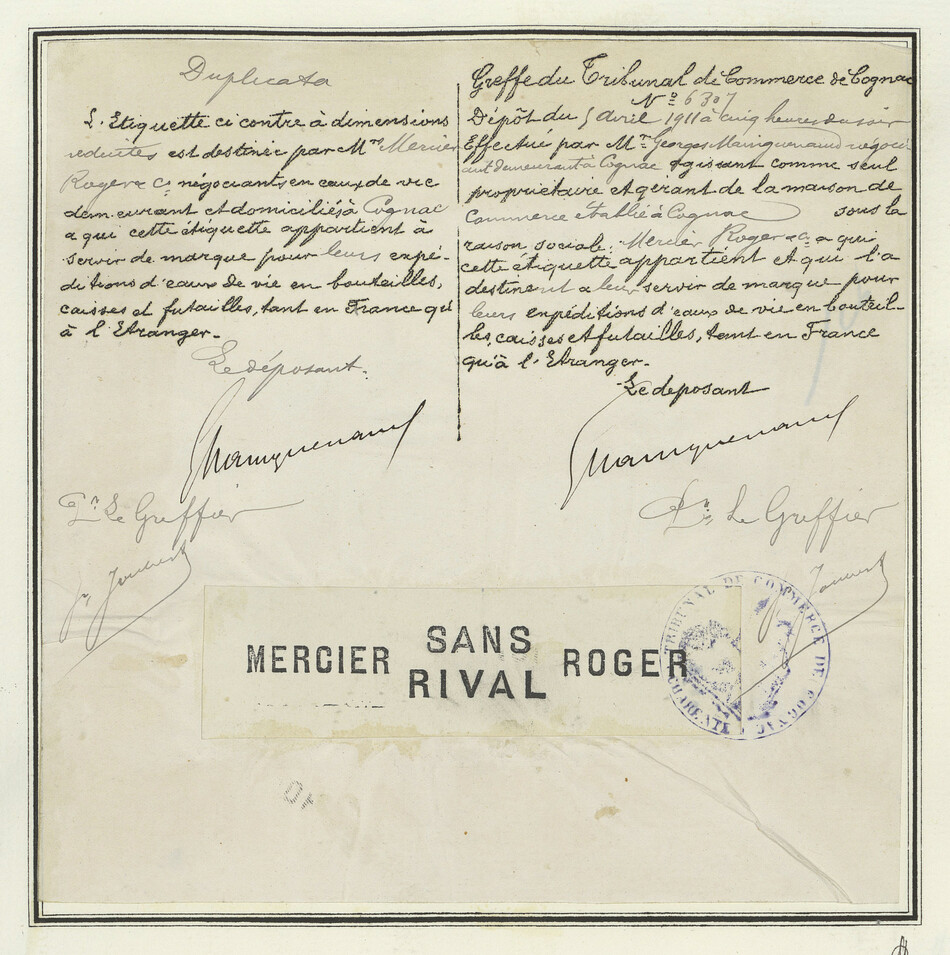 Duplicata
L'Etiquette ci contre à dimensions
reduites est destinée par Mrs Mercier
Roger & Co. négociants en eaux de vie
demeurant et domiciliés à Cognac
a qui cette étiquette appartient à
servir de marque pour leurs expé-
ditions d'eaux de vie en bouteilles,
caisses et futailles, tant en France qu'
à l'Etranger.
Le déposant.
Mainguenaud
Pr. Le Greffier
Greffe du Tribunal de Commerce de Cognac
No 6307
Dépôt du 5 Avril 1911 à cinq heures du soir
Effectué par Mr. Georges Mainguenaud négoci
ant demeurant à Cognac agissant comme seul
propriétaire et gérant de la maison de
Commerce établie à Cognac sous la
raison sociale: Mercier Roger & Co. a qui
cette étiquette appartient et qui l'a
destinent a leur servir de marque pour
leurs expéditions d'eaux de vie en bouteil-
les, caisses et futailles, tant en France
qu'à l'Etranger.
Le deposant
Mainguenaud
Pr. Le Greffier
MERCIER SANS RIVAL ROGER
TRIBUNAL DE COMMERCE DE COGNAC
CHARENTE